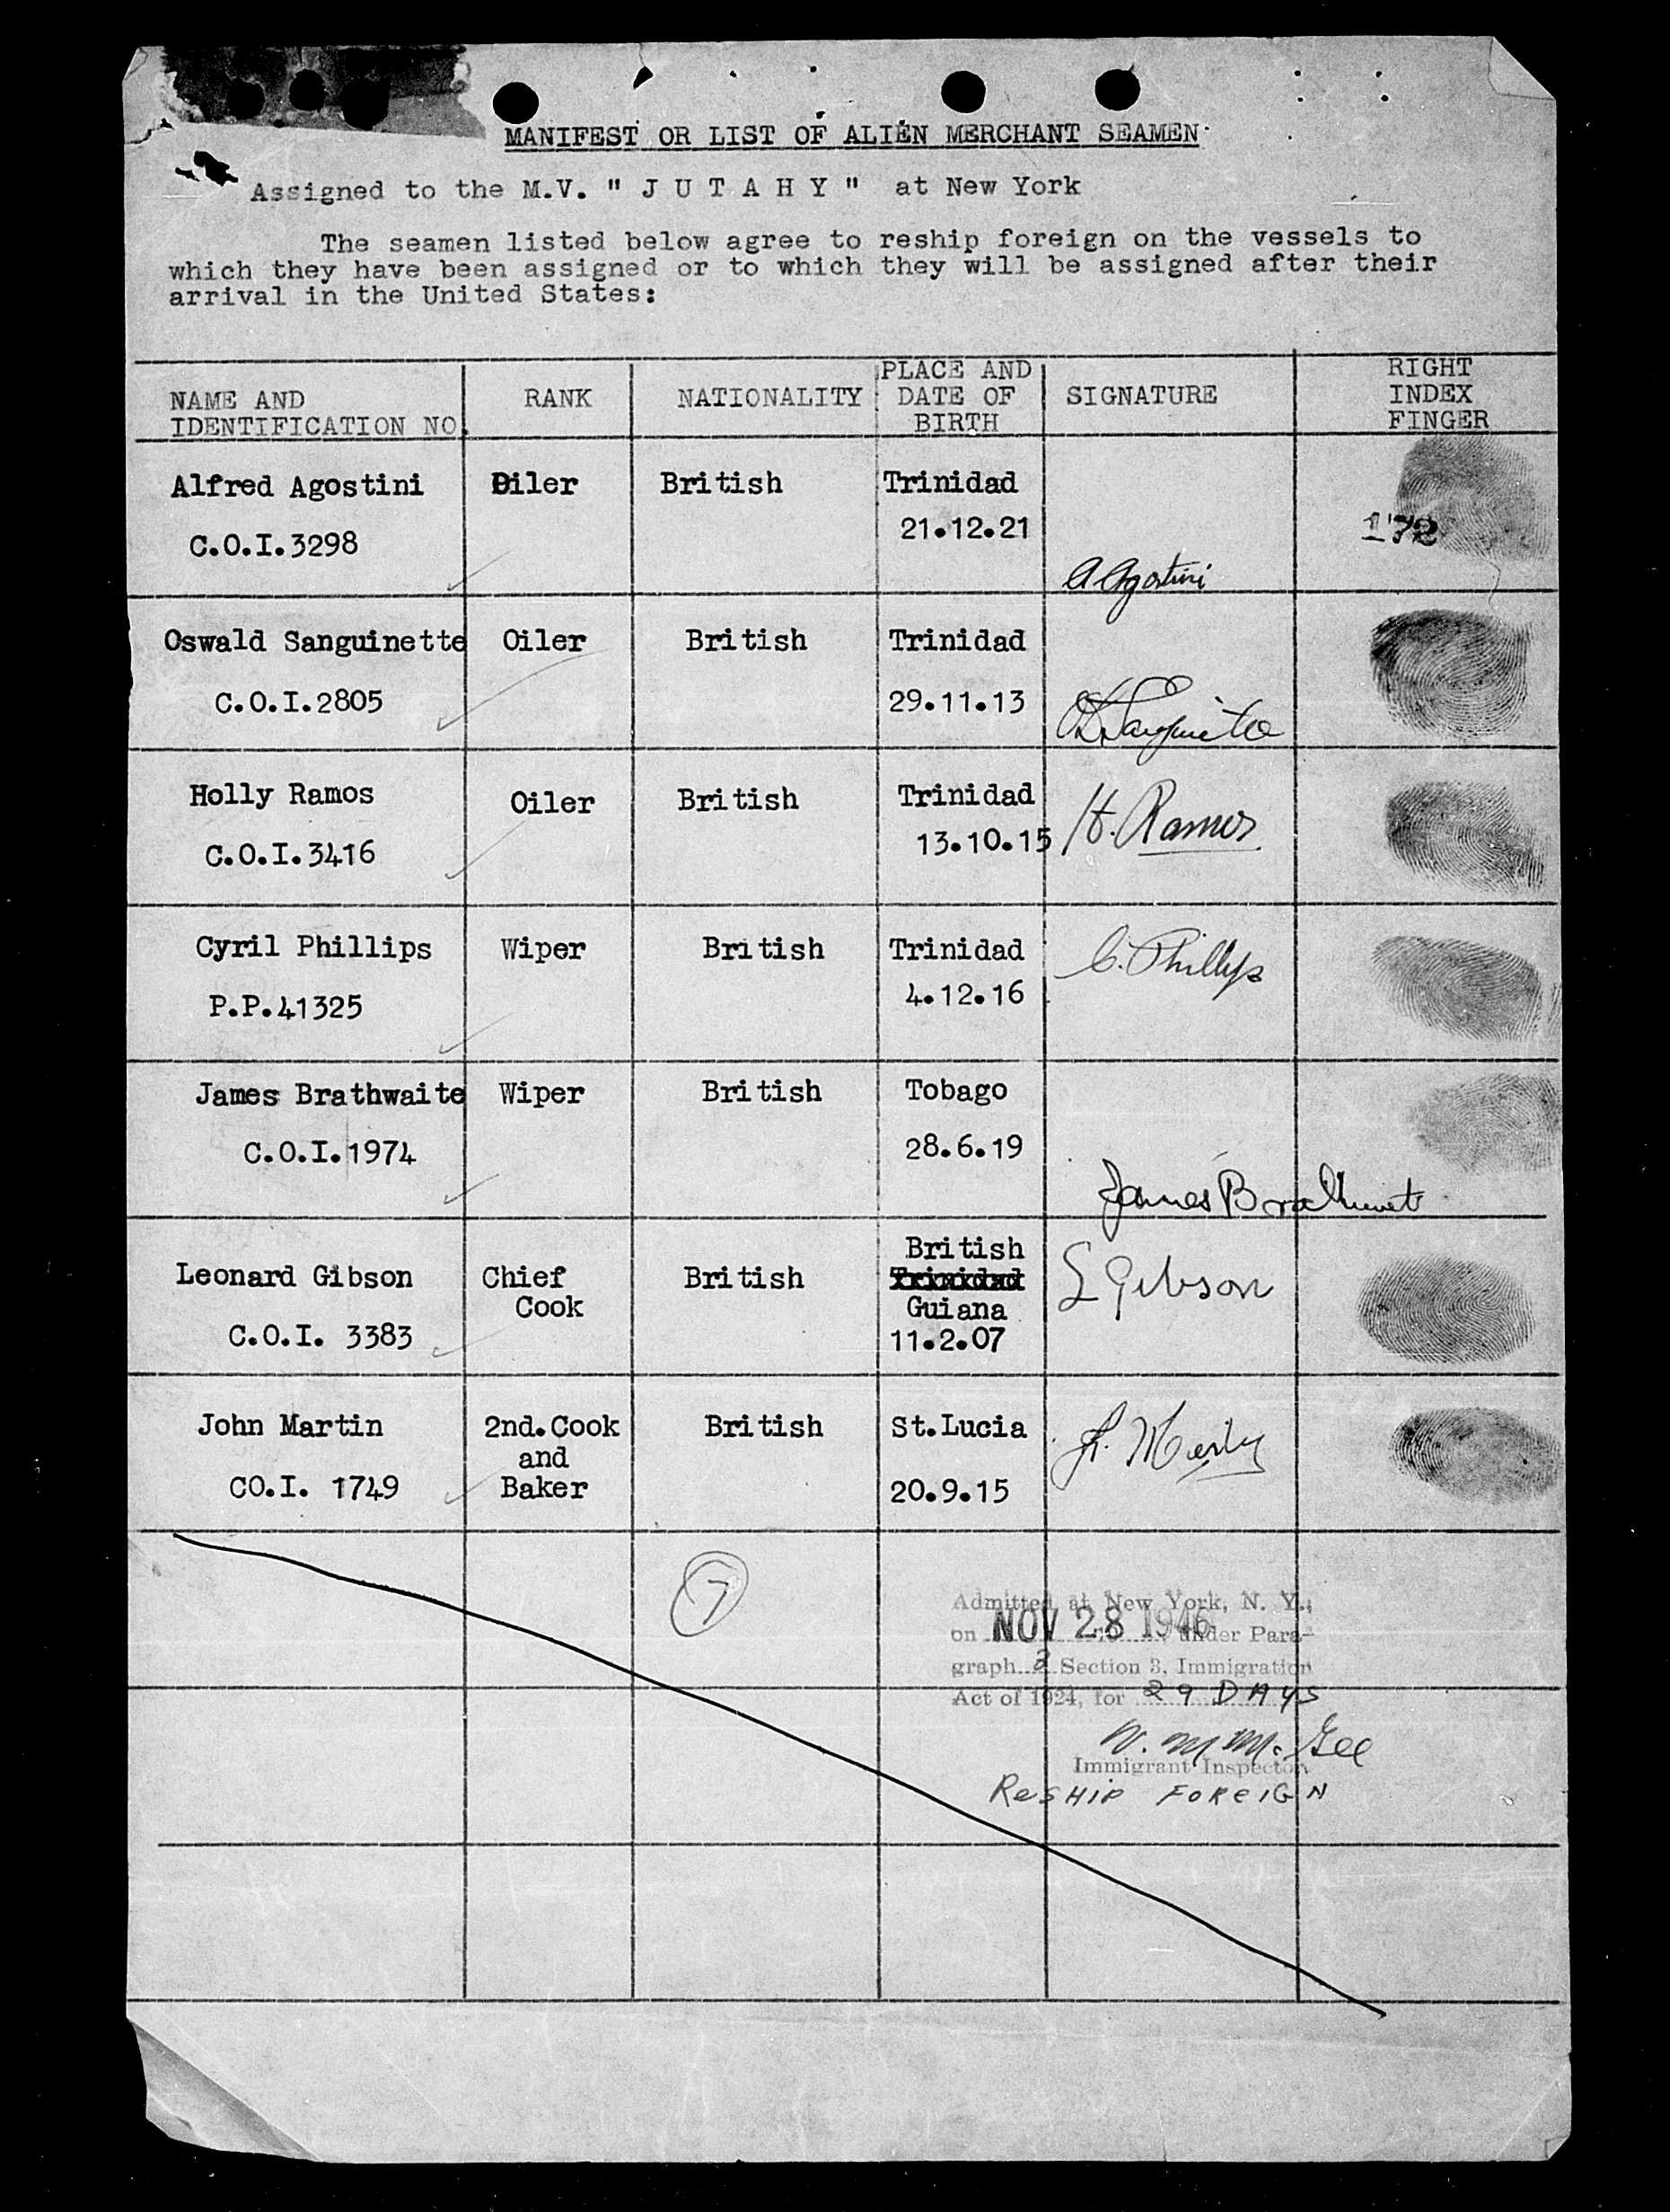 MANIFEST OR LIST OF ALIEN MERCHANT SEAMEN
Assigned to the M.V. " J U T A H Y " at New York
The seamen listed below agree to reship foreign on the vessels to
which they have been assigned or to which they will be assigned after their
arrival in the United States:
NAME AND
IDENTIFICATION NO.
RANK
NATIONALITY
PLACE AND
DATE OF
BIRTH
SIGNATURE
RIGHT
INDEX
FINGER
Alfred Agostini
C.O.I.3298
Oiler
British
Trinidad
21.12.21
A Agostini
172
Oswald Sanguinette
C.O.I.2805
Oiler
British
Trinidad
29.11.13
Holly Ramos
C.O.I.3416
Oiler
British
Trinidad
13.10.15
H. Ramos
Cyril Phillips
P.P.41325
Wiper
British
Trinidad
4.12.16
C. Phillips
James Brathwaite
C.O.I.1974
Wiper
British
Tobago
28.6.19
James
Leonard Gibson
C.O.I. 3383
Chief
Cook
British
British
Trinidad
Guiana
11.2.07
L Gibson
John Martin
CO.I. 1749
2nd.Cook
and
Baker
British
St.Lucia
20.9.15
7
Admitted at New York, N. Y.,
on NOV 28 1946 under Para-
graph 3 Section 3, Immigration
Act of 1924, for 29 DAYS
W. M Mc Gee
Immigrant Inspector.
RESHIP FOREIGN